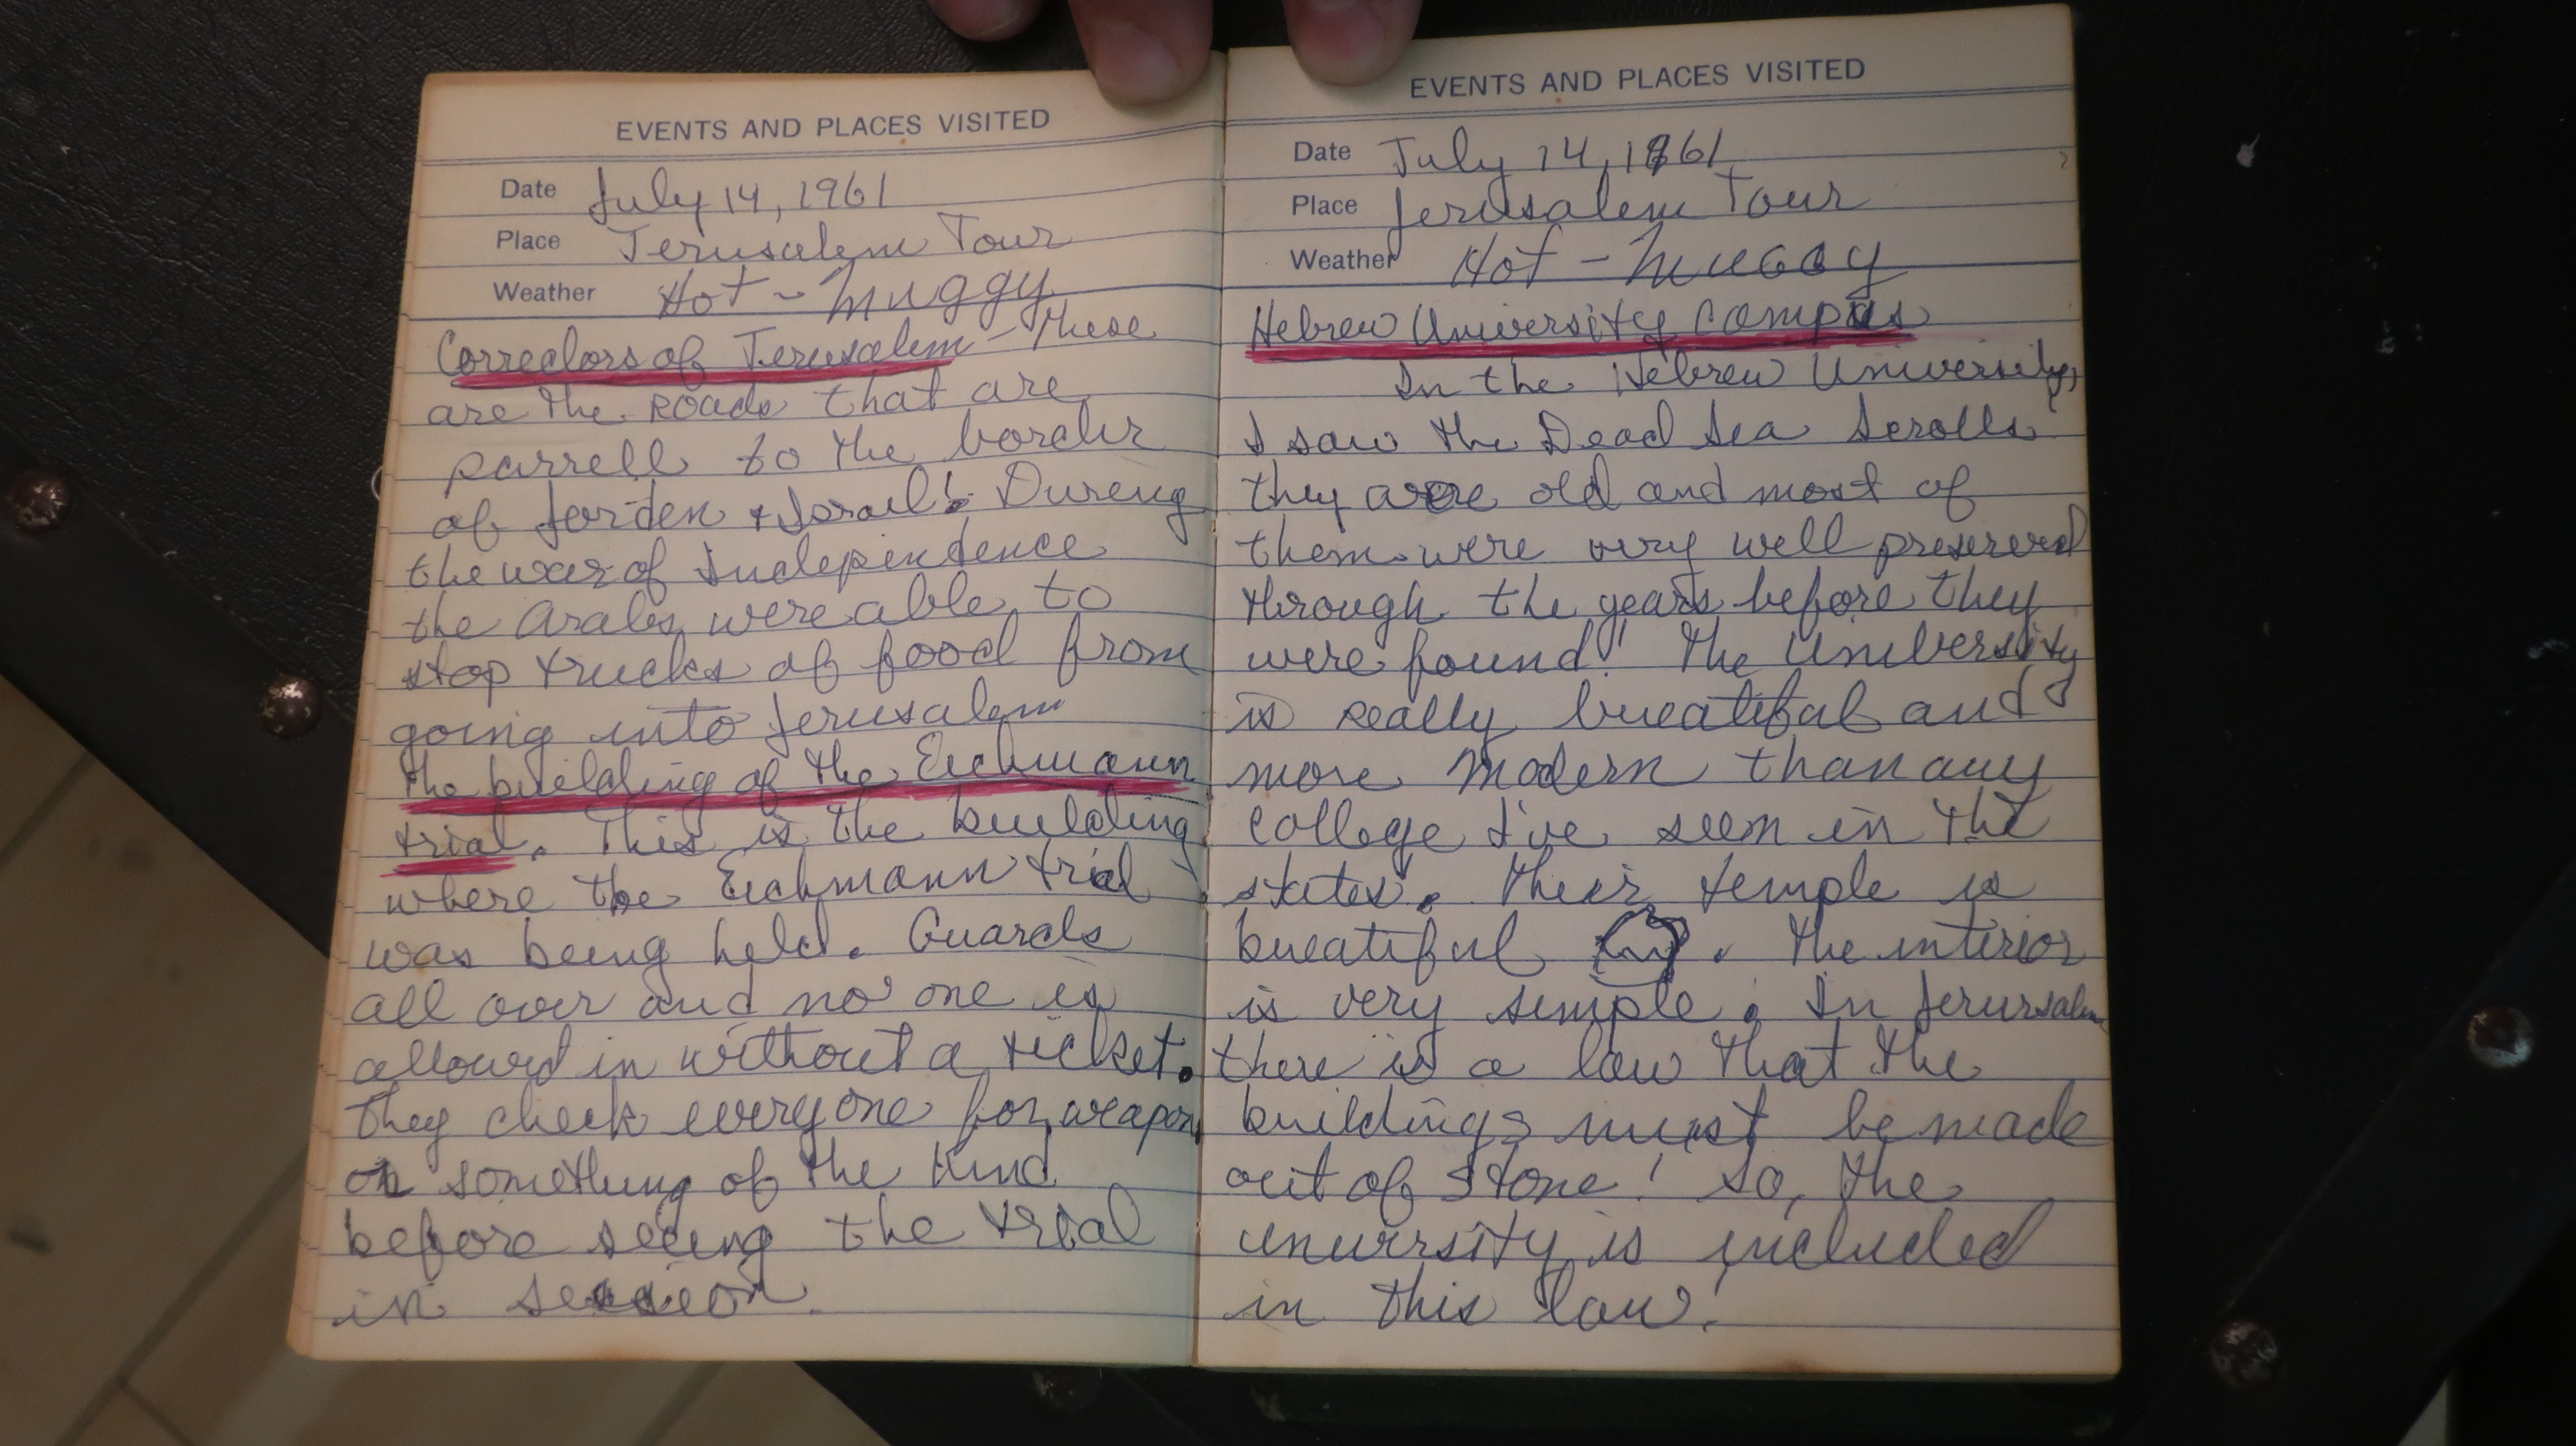 EVENTS AND PLACES VISITED
Date July 14, 1961
Place Jerusalem Tour
Weather Hot - Muggy
Corredors of Jerusalem - These
are the roads that are
parrell to the border
of Jorden + Israel! Dureing
the war of Independence
the Arabs were able to
stop trucks of food from
going into Jerusalem
The building of the Eichmann
trial. This is the building
where the Eichmann trial
was being held. Guards
all over and no one is
allowed in without a ticket.
They check everyone for weapons
or something of the kind
before seeing the trial
in session.
EVENTS AND PLACES VISITED
Date July 14, 1961
Place Jerusalem Tour
Weather Hot - Muggy
Hebrew University Campus
In the Hebrew University,
I saw the Dead Sea Scrolls
they were old and most of
them were very well preserved
through the years before they
were found! The University
is really bueatiful and
more modern than any
college I've seem in the
states. Their temple is
bueatiful . The interior
is very simple. In Jerursalem
there is a law that the
buildings must be made
out of stone! So, the
university is included
in this law!